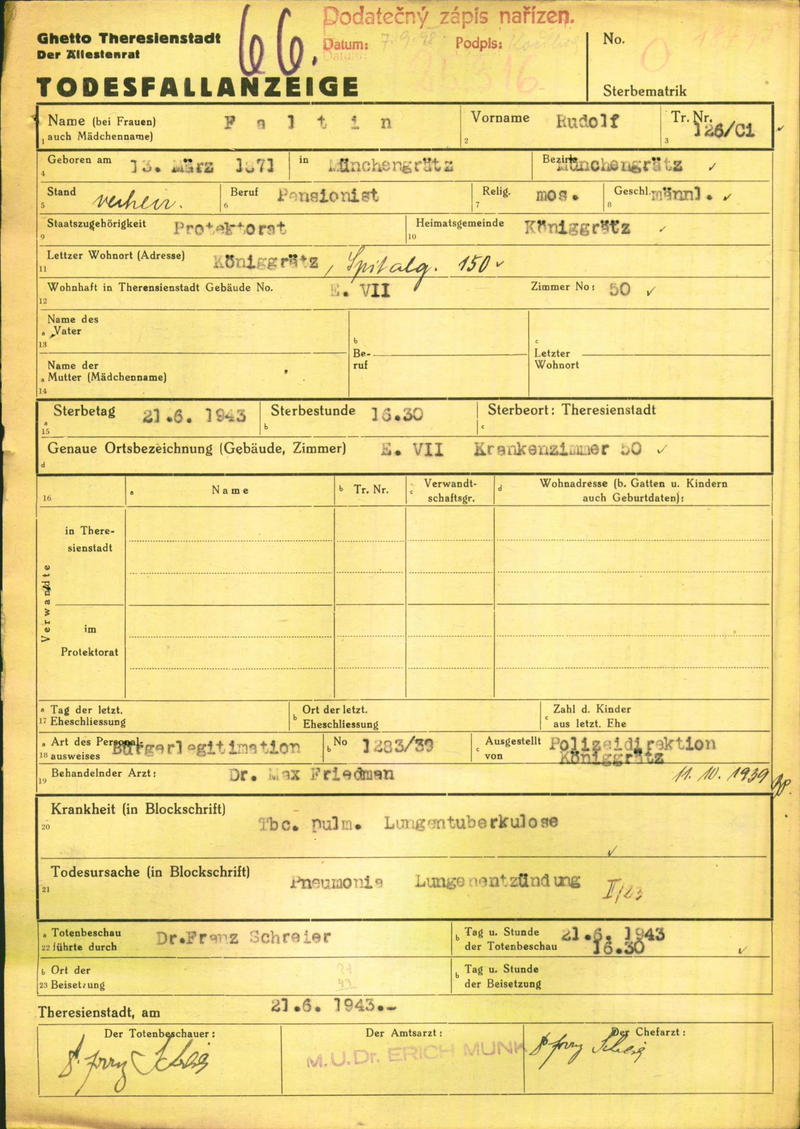 Ghetto Theresienstadt
Der Ältestenrat
TODESFALLANZEIGE
66.
Dodatečný zápis nařízen.
Datum: Podpis:
No.
Sterbematrik
Name (bei Frauen) Faltin
1 auch Mädchenname)
Vorname Rudolf
2
Tr. Nr. 126/Ci
3
Geboren am 13. März 1871 in Münchengrätz Bezirk Münchengrätz
4
Stand verheir. Beruf Pensionist Relig. mos. Geschl. männl.
5 6 7 8
Staatszugehörigkeit Protektorat Heimatsgemeinde Königgrätz
9 10
Lettzer Wohnort (Adresse) Königgrätz, Spitalg. 150
11
Wohnhaft in Theresienstadt Gebäude No. E. VII Zimmer No: 50
12
Name des
a Vater
13
b
Be-
ruf
c
Letzter
Wohnort
Name der
a Mutter (Mädchenname)
14
Sterbetag 21.6. 1943 Sterbestunde 16.30 Sterbeort: Theresienstadt
a b c
15
Genaue Ortsbezeichnung (Gebäude, Zimmer) E. VII Krankenzimmer 50
d
16 a Name b Tr. Nr. c Verwandt-
schaftsgr.
d Wohnadresse (b. Gatten u. Kindern
auch Geburtdaten):
Verwandte
in There-
sienstadt
im
Protektorat
a Tag der letzt.
17 Eheschliessung
b Ort der letzt.
Eheschliessung
c Zahl d. Kinder
aus letzt. Ehe
a Art des Personal-
18 ausweises
Bürgerlegitimation
b No 1283/39
c Ausgestellt
von
Polizeidirektion
Königgrätz
19 Behandelnder Arzt: Dr. Max Friedman 11. 10. 1939
Krankheit (in Blockschrift)
20
Tbc. pulm. Lungentuberkulose
Todesursache (in Blockschrift)
21
Pneumonie Lungenentzündung
a Totenbeschau
22 führte durch
Dr.Franz Schreier
b Tag u. Stunde
der Totenbeschau
21.6. 1943
16.30
b Ort der
23 Beisetzung
b Tag u. Stunde
der Beisetzung
Theresienstadt, am 21.6. 1943.-
Der Totenbeschauer:
Der Amtsarzt:
M.U.Dr. ERICH MUNK
Der Chefarzt: